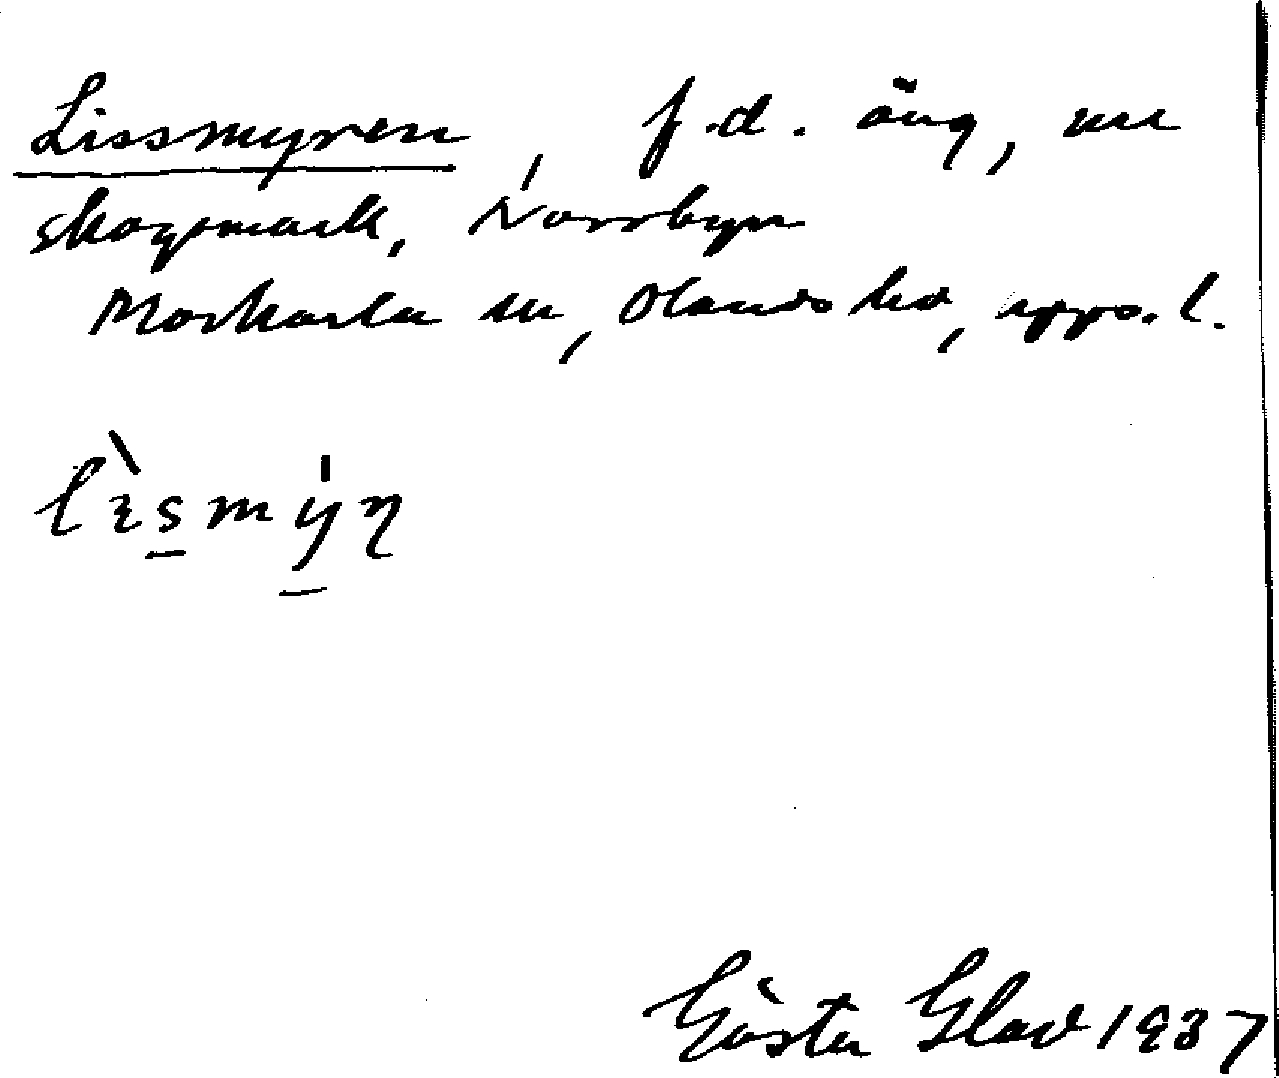 Lissmyren, f.d. äng, nu
skogsmark, Norrbyn
Morkarla sn, Olands hd, Upps. l.
Gösta Glad 1937